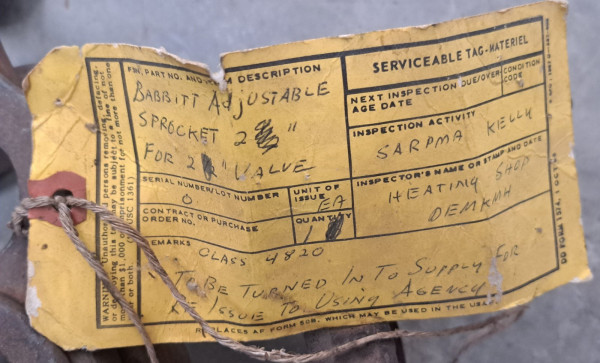 SERVICEABLE TAG-MATERIEL
FSN, PART NO. AND ITEM DESCRIPTION
BABBITT AdjUSTABLE
SPROCKET 2 "
FOR 2 " VALVE
NEXT INSPECTION DUE/OVERAGE DATE
CONDITION CODE
INSPECTION ACTIVITY
SARPMA KELLY
SERIAL NUMBER/LOT NUMBER
0
UNIT OF ISSUE
EA
CONTRACT OR PURCHASE ORDER NO.
QUANTITY
1
INSPECTOR'S NAME OR STAMP AND DATE
HEATING SHOP
DEMKMH
REMARKS
CLASS 4820
TO BE TURNED IN TO SUPPLY FOR
RE ISSUE TO USING AGENCY
REPLACES AF FORM 50B, WHICH MAY BE USED IN THE
DD FORM 1574, 1 OCT
WARNING: Unauthorized persons removing, defacing,
or destroying this tag may be subject to a fine of not
more than $1,000 or imprisonment for not more than one
year or both. (18 USC 1361)